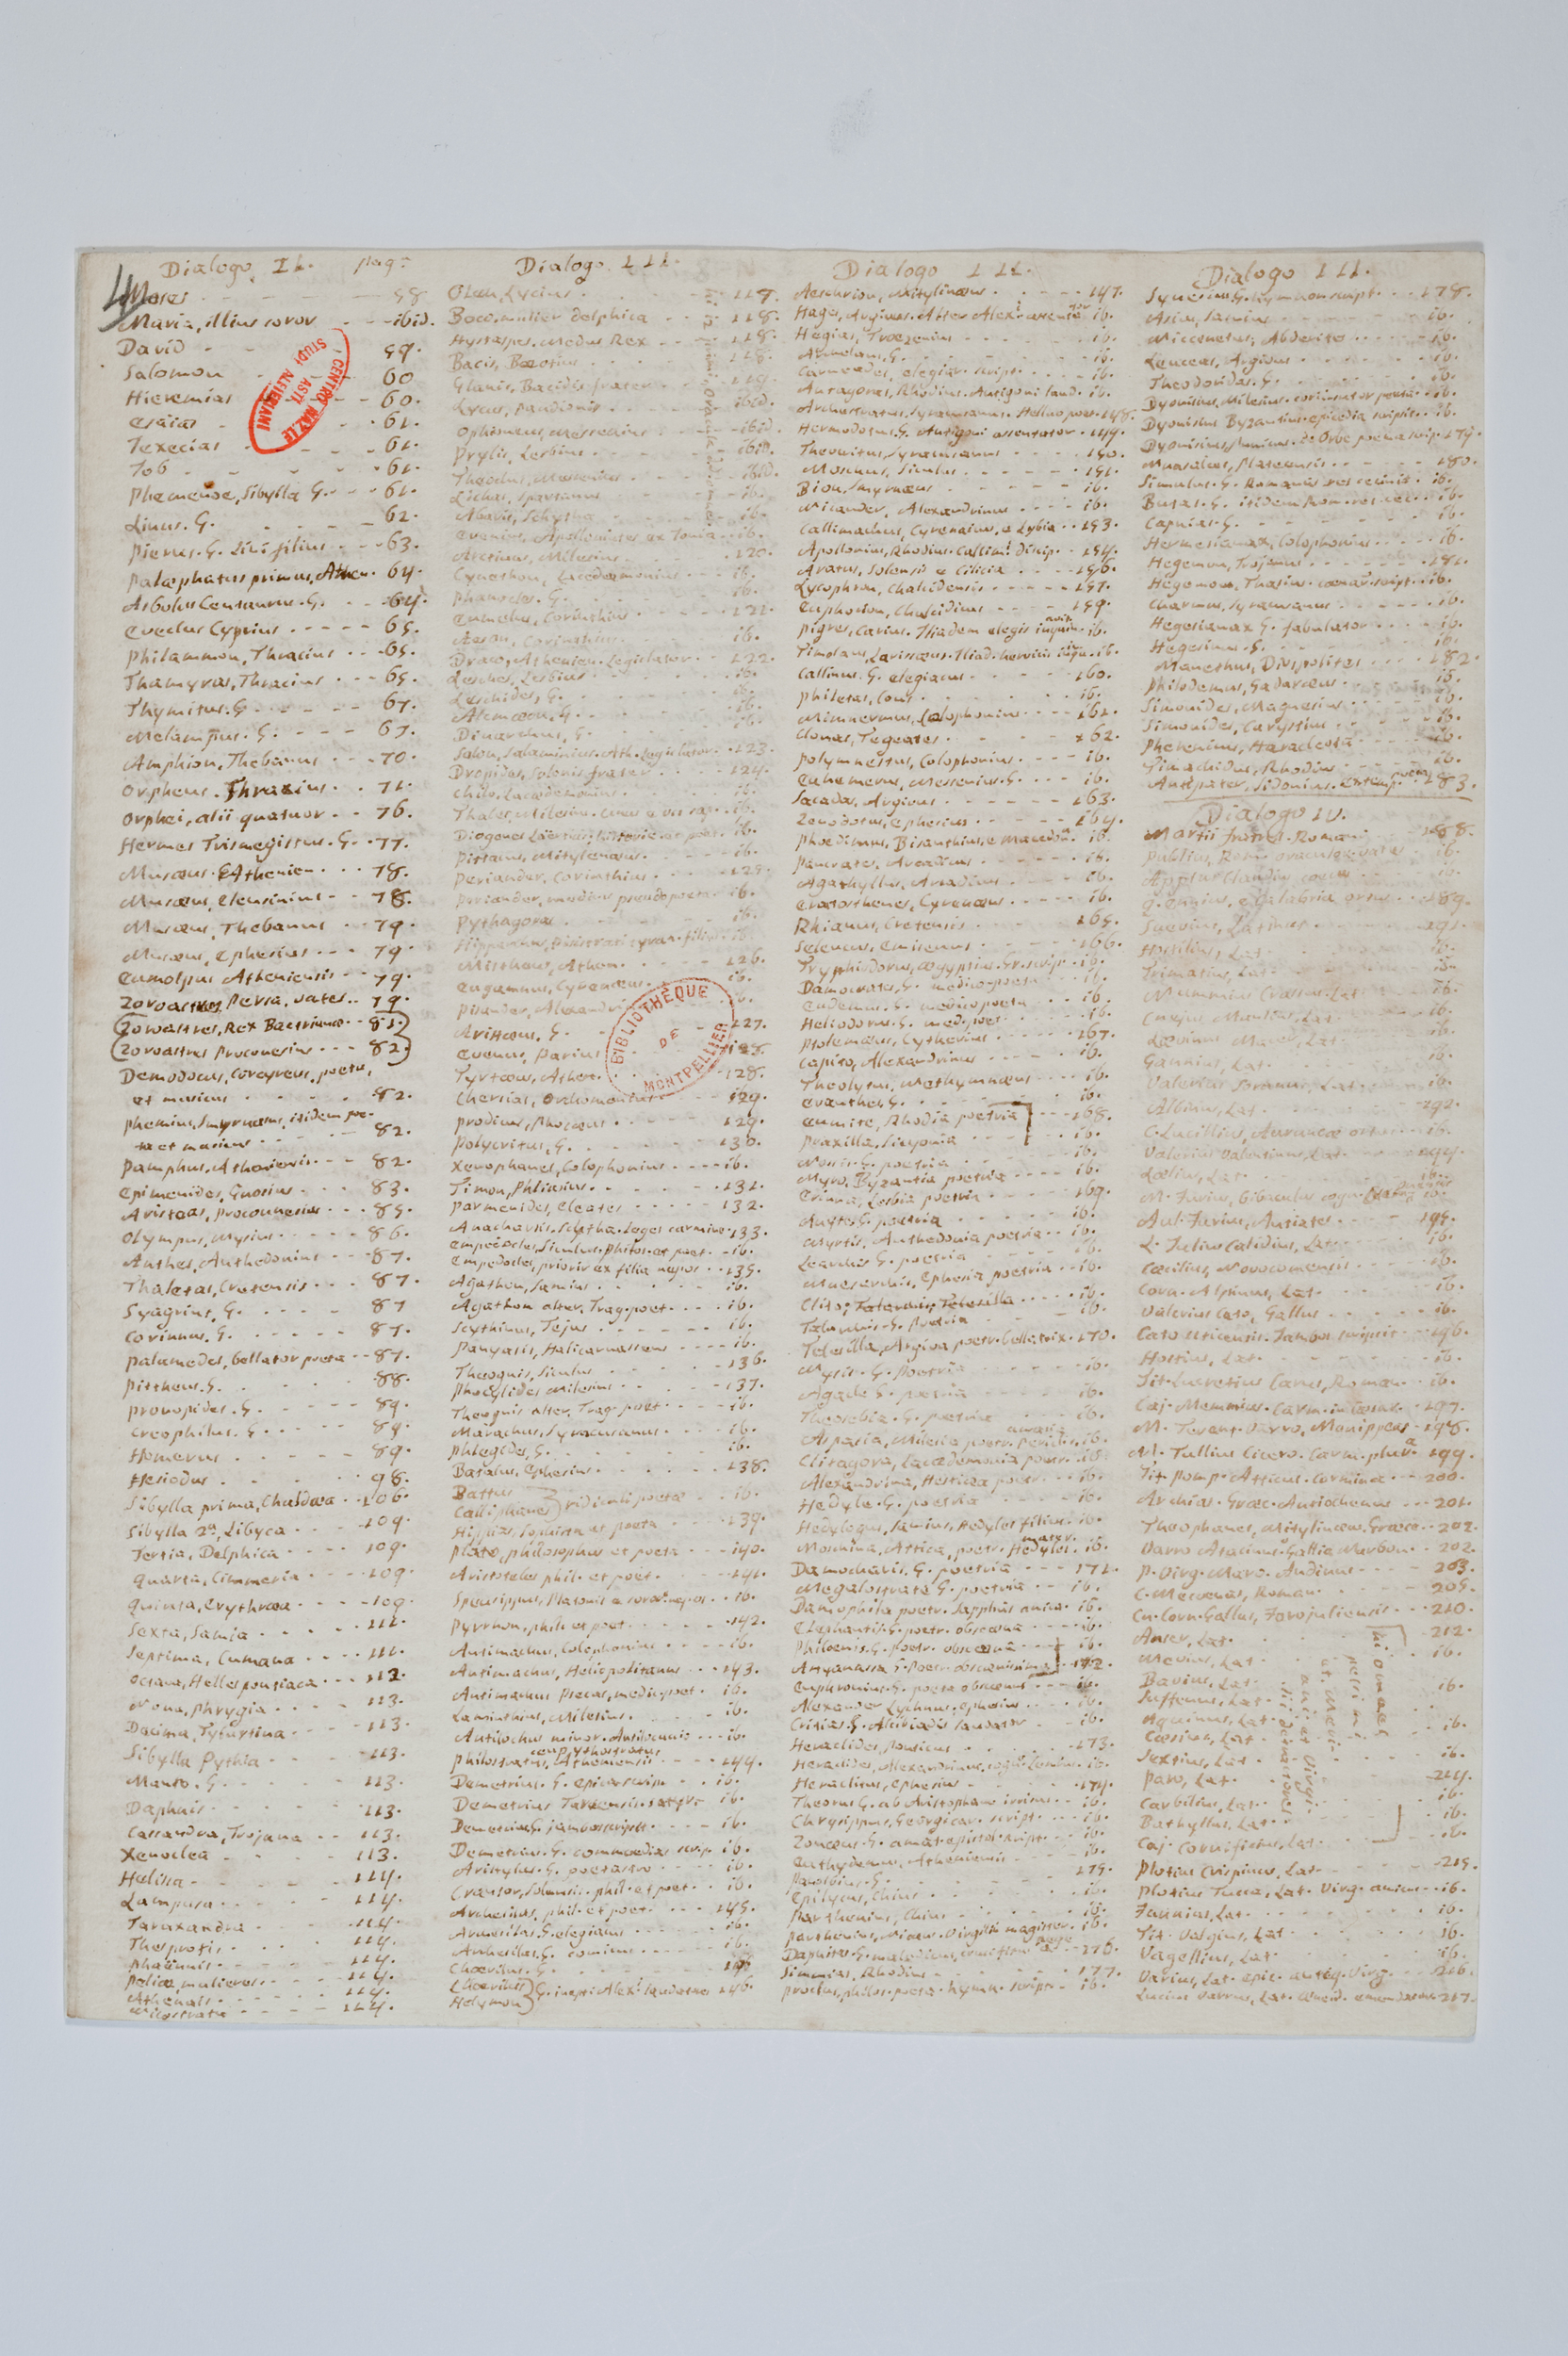 Dialogo II. pag:
Moses - - - 58
Maria, illius soror - - - ibid.
David - - 59.
Salomon 60
Hieremias - - 60.
Esaias - - 61.
Jexecias - - - 61.
Job - - - - 61.
Phemenoe, Sibylla G. - - - 61.
Linus. G. - - - - 62.
Pierus. G. Lini filius - - - 63.
Palæphatus primus, Athen. 64.
Asbolus Centaurus. G. - - - 64.
Eveclus Cyprius - - - - - 65.
Philammon, Thracius - - - 65.
Thamyras, Thracius - - - 65.
Thymitus. G - - - - - 67.
Melampus. G. - - - - 67.
Amphion, Thebanus - - - 70.
Orpheus. Thracius. - - 71.
Orphei, alii quatuor - - 76.
Hermes Trismegistus. G. - - 77.
Musæus. Athenien - - - 78.
Musæus, Eleusinius - - - 78.
Musæus, Thebanus - - 79.
Musæus, Ephesius - - - 79.
Eumolpus Atheniensis - - 79.
Zoroastres, Persa, vates. - 79.
Zoroastres, Rex Bactrianus - - 81.
Zoroastres Proconesius - - - 82.
Demodocus, Corcyreus, poeta,
et musicus - - - - - 82.
Phemius, Smyrnæus, itidem poe-
ta et musicus - - - - 82.
Pamphus, Atheniensis - - - 82.
Epimenides, Gnosius - - - 83.
Aristeas, Proconnesius - - - 85.
Olympus, Mysius - - - - - 86.
Anthes, Anthedonius - - - 87.
Thaletas, Cretensis - - - 87.
Syagrius, G. - - - - 87
Corinnus. G. - - - - - 87.
Palamedes, bellator poeta - - 87.
Pittheus. G. - - - - 88.
Pronopides. G. - - - - - 89.
Creophilus. G. - - - 89.
Homerus - - - - - 89.
Hesiodus - - - - 98.
Sibylla prima, Chaldæa - - 106.
Sibylla 2a, Libyca - - - - 109.
Tertia, Delphica - - - - 109.
Quarta, Cimmeria - - - - 109.
Quinta, Erythræa - - - - 109.
Sexta, Samia - - - - - 111.
Septima, Cumana - - - - 111.
Octava, Hellespontiaca - - - 112.
Nona, Phrygia - - - - 113.
Decima, Tyburtina - - - - 113.
Sibylla Pythia - - - - 113.
Manto. G. - - - - - 113.
Daphnis - - - - - 113.
Cassandra, Trojana - - 113.
Xenoclea - - - - - 113.
Melissa - - - - - 114.
Lampusa - - - - - 114.
Taraxandra - - - - 114.
Thesprotis - - - - 114.
Phaennis - - - - 114.
Peliæ, mulieres - - - - 114.
Athenais - - - - - 114.
Nicostrata - - - - 114.
Dialogo III.
Olen, Lycius - - - - 117.
Boco. mulier Delphica - - - 118.
Hystaspes. Medus Rex - - - 118.
Bacis, Bæotius - - - - 118.
Glanis, Bacidis frater - - - 119
Lycus, Pandionis - - - - ibid.
Ophioneus, Messenius - - - ibid.
Prylis, Lesbius - - - - ibid.
Theoclus, Messenius - - - ibid.
Lichas, Spartanus - - - ib.
Abaris, Schytha - - - - ib.
Evenius, Apolloniates ex Ionia - - ib.
Arctinus, Milesius - - - 120.
Cynethon, Lacedæmonius - - - ib.
Phanocles. G. - - - - ib.
Eumelus, Corinthius - - - - 121.
Aeson, Corinthius - - - ib.
Draco, Athenien. Legislator - - 122.
Lesches, Lesbius - - - - ib.
Leschides, G. - - - - ib.
Alcmæon, G. - - - - ib.
Dinarchus, G. - - - - ib.
Solon, Salaminius. Ath. Legislator - - 123.
Dropides, Solonis frater - - - - 124.
Chilo, Lacedemonius - - - ib.
Thales, Milesius. unus e VII sap. - - ib.
Diogenes Laertius, historic. et poet. - ib.
Pittacus, Mitylenæus - - - - ib.
Periander, Corinthius - - - - 125.
Periander, medicus pseudopoeta - ib.
Pythagoras - - - - - ib.
Hipparchus, Pisistrati tyran. filius - ib.
Misthon, Athen. - - - - 126.
Eugamnus, Cyrenæus - - - ib.
Pisander, Alexandrin
Aristæus. G. - - - - 127.
Evenus, Parius
Tyrtæus, Athen. - - - 128.
Chersias, Orchomenius - - - 129.
Prodicus, Phocæus - - - - 129.
Polycritus, G. - - - - - 130.
Xenophanes, Colophonius - - - - ib.
Timon, Phliasius - - - - - 131.
Parmenides, Eleates - - - - - 132.
Anacharsis. Scytha. Leges carmine - 133.
Empedocles, Siculus. philos. et poet. - ib.
Empedocles, prioris ex filia nepos - - 135.
Agathon, Samius - - - - ib.
Agathon alter. Trag. poet. - - - ib.
Scythinus, Tejus - - - - - ib.
Panyasis, Halicarnasseus - - - - ib.
Theognis, Siculus - - - - 136.
Phocylides Milesius - - - - 137.
Theognis alter. Trag. poet - - - ib.
Maracus, Syracusanus - - - ib.
Phlegides, G. - - - - ib.
Batalus, Ephesius - - - - - 138.
Battus
Calliphanes } ridiculi poetæ - - ib.
Hippias, sophista et poeta - - - 139.
Plato, philosophus et poeta - - - 140.
Aristoteles phil. et poet. - - - 141.
Speusippus, Platonis e sorore nepos - - ib.
Pyrrhon, phil. et poet - - - - 142.
Antimachus, Colophonius - - - - ib.
Antimachus, Heliopolitanus - - - 143.
Antimachus Psecas, medic. poet - ib.
Laminthius, Milesius - - - - ib.
Antilochus minor. Antilocunis - - - ib.
ceu Pythostratus
Philostratus, Atheniensis - - - - 144.
Demetrius. G. epicus scrip. - - ib.
Demetrius Tarsensis. satyr. ib.
Demetrius G. jambos script. - - - ib.
Demetrius. G. commædias scrip. ib.
Aristylus. G. poetastro - - - - ib.
Crantor, Solensis. phil. et poet - - ib.
Archesilas, phil. et poet. - - - 145.
Arcesilas. G. elegiacus - - - - - ib.
Arcesilas. G. comicus - - - - ib.
Choerilus. G. - - - - - 146
Choerilus
Helymon } G. inepti Alexi laudatores 146.
Dialogo III.
Aeschrion, Mitylinæus - - - - - 147.
Hages, Argivus. Alter ib.
Hegias, Træzenius - - - - ib.
ib.
Carneades, elegiar. script. - - - - ib.
Antagoras, Rhodius. Antigoni laud. ib.
Archestratus, Syracusanus. 148.
Hermodotus. G. Antigoni assentator. 149.
Theocritus, Syracusanus - - - - 150.
Moschus, Siculus - - - - - 151.
Bion, Smyrnæus - - - - - ib.
Nicander, Alexandrinus - - - - ib.
Callimachus, Cyrenaius, a Lybia - - 153.
Apollonius, Rhodius. Callimi discip. - - 154.
Aratus, Solensis e Cilicia - - - - 156.
Lycophron, Chalcidensis - - - - - 157.
Euphorion, Chalcidius - - - - 159.
Pigres, Carius. Iliadem elegis - ib.
Timolaus, Larissæus. Iliad. heroicis - ib.
Callinus. G. elegiacus - - - - - 160.
Philetas, Cous - - - - - ib.
Mimnermus, Colophonius - - - - 161.
Clonas, Tegeates - - - - - 162.
Polymnestus, Colophonius - - - ib.
Euhemerus, Messenius. G. - - - ib.
Sacadas, Argivus - - - - - 163.
Zenodotus, Ephesius - - - - - 164.
Phoedimus, Bisanthius, e Macedon. ib.
Pancrates, Arcadicus - - - - - ib.
Agathyllus, Arcadius - - - - ib.
Eratosthenes, Cyrenæus - - - - - ib.
Rhianus, Cretensis - - - - 165.
Seleucus, Emisenus - - - - - 166.
Tryphiodorus, ægyptius. Gr. script. - ib.
Damocrates, G. medico-poeta - - ib.
Eudemus. G. medico poeta - - - ib.
Heliodorus. G. med. poet - - - - ib.
Ptolemæus, Cytherius - - - - 167.
Capito, Alexandrinus - - - - - ib.
Theolytus, Methymnæus - - - - ib.
Evanthes. G. - - - - - ib.
Eumite, Rhodia poetria - - - 168.
Praxilla, Sicyonia - - - - - ib.
Nossis. G. poetria - - - - ib.
Myro, Byzantia poetria - - - - ib.
Erinna, Lesbia poetria - - - - - 169.
Anyte. G. poetria - - - - - ib.
Myrtis, Anthedonia poetria - - ib.
Learchis G. poetria - - - - ib.
Musearchis, Ephesia poetria - - ib.
Clito; - - - - - ib.
G. poetria - - - - ib.
Telesilla, Argiva poetr. bellatrix - 170.
Mysis. G. poetria - - - - ib.
Agacle G. poetria - - - - ib.
Theosebia. G. poetria - - - ib.
amasia
Aspasia, Milesia poetr. Periclis. ib.
Clitagora, Lacædemonia poetr. ib.
Alexandrina, Hestiæa poetr. - - - ib.
Hedyle. G. poetria - - - - - ib.
Hedylogus, Samius, Hedyles filius - ib.
mater.
Moschina, Attica, poetr. Hedyles. ib.
Damocharis. G. poetria - - - 171.
Megalostrata G. poetria - - ib.
Damophila poetr. Sapphus amica - ib.
Elephantis. G. poetr. obscæna - - - ib.
Philoenis. G. poetr. obscæna - - - ib.
Astyanassa G. Poetr. obscænissima 172.
Euphronius. G. poeta obscænus - - - ib.
Alexander Lychnus, Ephesius - - - ib.
Critias. G. Alcibiadis laudator - - ib.
Heraclides, Ponticus - - - - 173.
Heraclides, Alexandrinus, cogn. Lembus. ib.
Heraclitus, Ephesius - - - - 174.
Theorus G. ab Aristophane irrisus - - ib.
Chrysippus, Georgicar. script. - - - ib.
Zonæus. G. amat. epistol. script. - - ib.
Euthydemus, Atheniensis - - - ib.
G. - - - - - 175.
Epilycus, Chius - - - - - ib.
Parthenius, Chius - - - - - ib.
Parthenius, Nicæus. Virgilii magister. - ib.
Daphitas. G. maledicus, - - 176.
Simmias, Rhodius - - - - - 177.
Proclus, philos. poeta. hymn. script. - ib.
Dialogo III.
Synesius G. hymnon script. - - - 178.
Asius, Samius - - - - - ib.
Nicænetus, Abderites - - - - - ib.
Leuceas, Argivus - - - - - ib.
Theodoridas. G. - - - - - ib.
Dyonisius, Milesius. ib.
Dyonisius Byzantius. epicedia scripsit. - ib.
Dyonisius, de Orbe poema scrip. - 179.
Mnasalcas, Plateensis - - - - - 180.
Simulus. G. Romanis res cecinit. - ib.
Butas. G. itidem Rom. res cec. - - ib.
Capnias. G. - - - - - ib.
Hermesianax, Colophonius - - - - ib.
Hegemon, Trojanus - - - - - 181.
Hegemon, Thasius. script. - ib.
Charmus, Syracusanus - - - - - ib.
Hegesianax G. fabulator - - - - ib.
Hegesinus. G. - - - - - ib.
Manethus, Diospolites - - - - 182.
Philodemus, Gadaræus - - - - ib.
Simonides, Magnesius - - - - ib.
Simonides, Carystius - - - - ib.
Pherenicus, Heracleota - - - - ib.
Timachidas, Rhodius - - - - ib.
Antipater, Sidonius. extemp. poeta - 183.
Dialogo IV.
Martii fratres. Romani - - - 188.
Publius, Rom. - - ib.
Appius Claudius coecus - - - ib.
Q. Ennius, e Calabria ortus - - - 189.
Suevius, Latinus - - - - 191.
Hostilius, Lat. - - - - ib.
Trimatius, Lat. - - - - ib.
Mummius Lat. - - ib.
Cneius Mattius, Lat. - - - ib.
Lævinus Lat. - - - ib.
Gannius, Lat. - - - - ib.
Valerius Soranus, Lat. - - - ib.
Albinus, Lat. - - - - - 192.
C. Lucillius, Auruncæ ortus - - - ib.
Valerius Valentinus, Lat. - - - 194.
Lælius, Lat. - - - - - ib.
M. Furius, Bibaculus cogn. ib.
Aul. Furius, Antiates - - - - 195.
L. Julius Calidius, Lat. - - - ib.
Cæcilius, Novocomensis - - - - ib.
Corn. Alpinus, Lat. - - - - ib.
Valerius Cato, Gallus - - - - - ib.
Cato Uticensis. Jambos scripsit - - 196.
Hostius, Lat. - - - - - ib.
Tit. Lucretius Carus, Roman. - - ib.
Caj. Memmius. Carm. in Cæsar. - 197.
M. Terent. Varro, Menippeas - 198.
M. Tullius Cicero. Carm. plura 199.
Tit. Pomp. Atticus. Carmina - - 200.
Archias. Græc. Antiochenus - - - 201.
Theophanes, Mitylinæus. Græce - - 202.
Varro Atacinus. Gallia Narbon. - - 202.
P. Virg. Maro. Andinus - - - - 203.
C. Mecænas, Roman. - - - - - 205.
Cn. Corn. Gallus, Forojuliensis - - - 210.
Anser, Lat. - - - - - 212.
Mevius, Lat. - - - - - ib.
Bavius, Lat. - - - - - ib.
Suffenus, Lat.
Aquinus, Lat. - - - - ib.
Cæsius, Lat.
Sextius, Lat. - - - - - ib.
Paro, Lat. - - - - - 214.
Carbilius, Lat. - - - - ib.
Bathyllus, Lat. - - - - ib.
Caj. Cornificius, Lat. - - - - ib.
hi omnes
pessimi,
ut Mecii,
anti et Virgi-
lii detractores
Plotius Crispinus, Lat. - - - - - 215.
Plotius Tucca, Lat. Virg. amicus - - ib.
Fannius, Lat. - - - - - ib.
Tit. Valgius, Lat. - - - - ib.
Vagellius, Lat. - - - - - ib.
Varius, Lat. epic. anteq. Virg. - - - 216.
Lucius Varrus, Lat. Æneid. emendator. 217.
CENTRO NAZ. LE
STUDI ALFIERIANI
ASTI
BIBLIOTHÈQUE
DE
MONTPELLIER